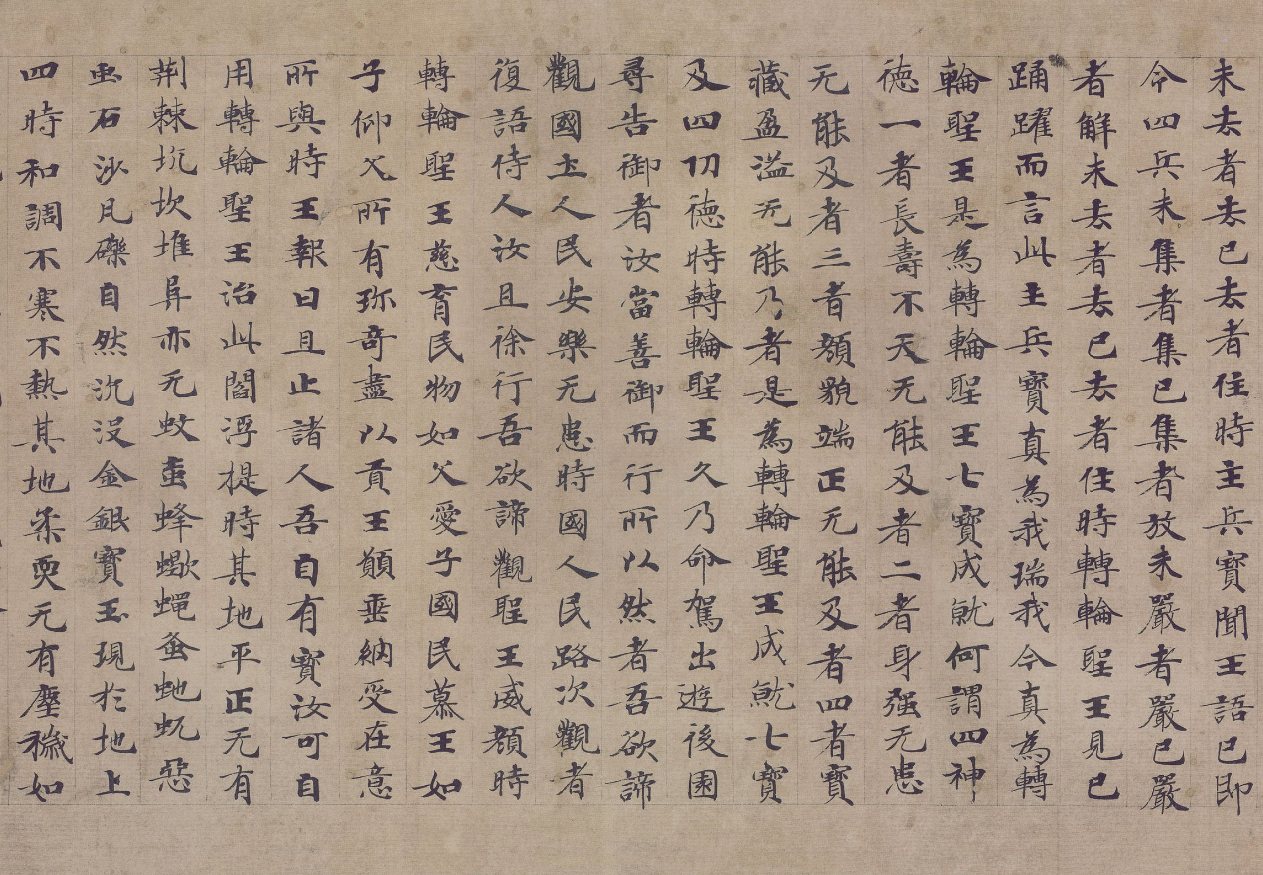 未去者去已去者住時主兵寶聞王語已即
令四兵未集者集已集者放未嚴者嚴已嚴
者解未去者去已去者住時轉輪聖王見已
踊躍而言此主兵寶真為我瑞我今真為轉
輪聖王是為轉輪聖王七寶成就何謂四神
德一者長壽不夭无能及者二者身强无患
无能及者三者顏貌端正无能及者四者寶
藏盈溢无能及者是為轉輪聖王成就七寶
及四功德時轉輪聖王久乃命駕出遊後園
尋告御者汝當善御而行所以然者吾欲諦
觀國土人民安樂无患時國人民路次觀者
復語侍人汝且徐行吾欲諦觀聖王威顏時
轉輪聖王慈育民物如父愛子國民慕王如
子仰父所有珎奇盡以貢王願垂納受在意
所與時王報曰且止諸人吾自有寶汝可自
用轉輪聖王治此閻浮提時其地平正无有
荆棘坑坎堆阜亦无蚊䖟蜂蠍蠅蚤虵蚖惡
虫石沙凡礫自然沉没金銀寶玉現於地上
四時和調不寒不熱其地柔耎无有塵穢如